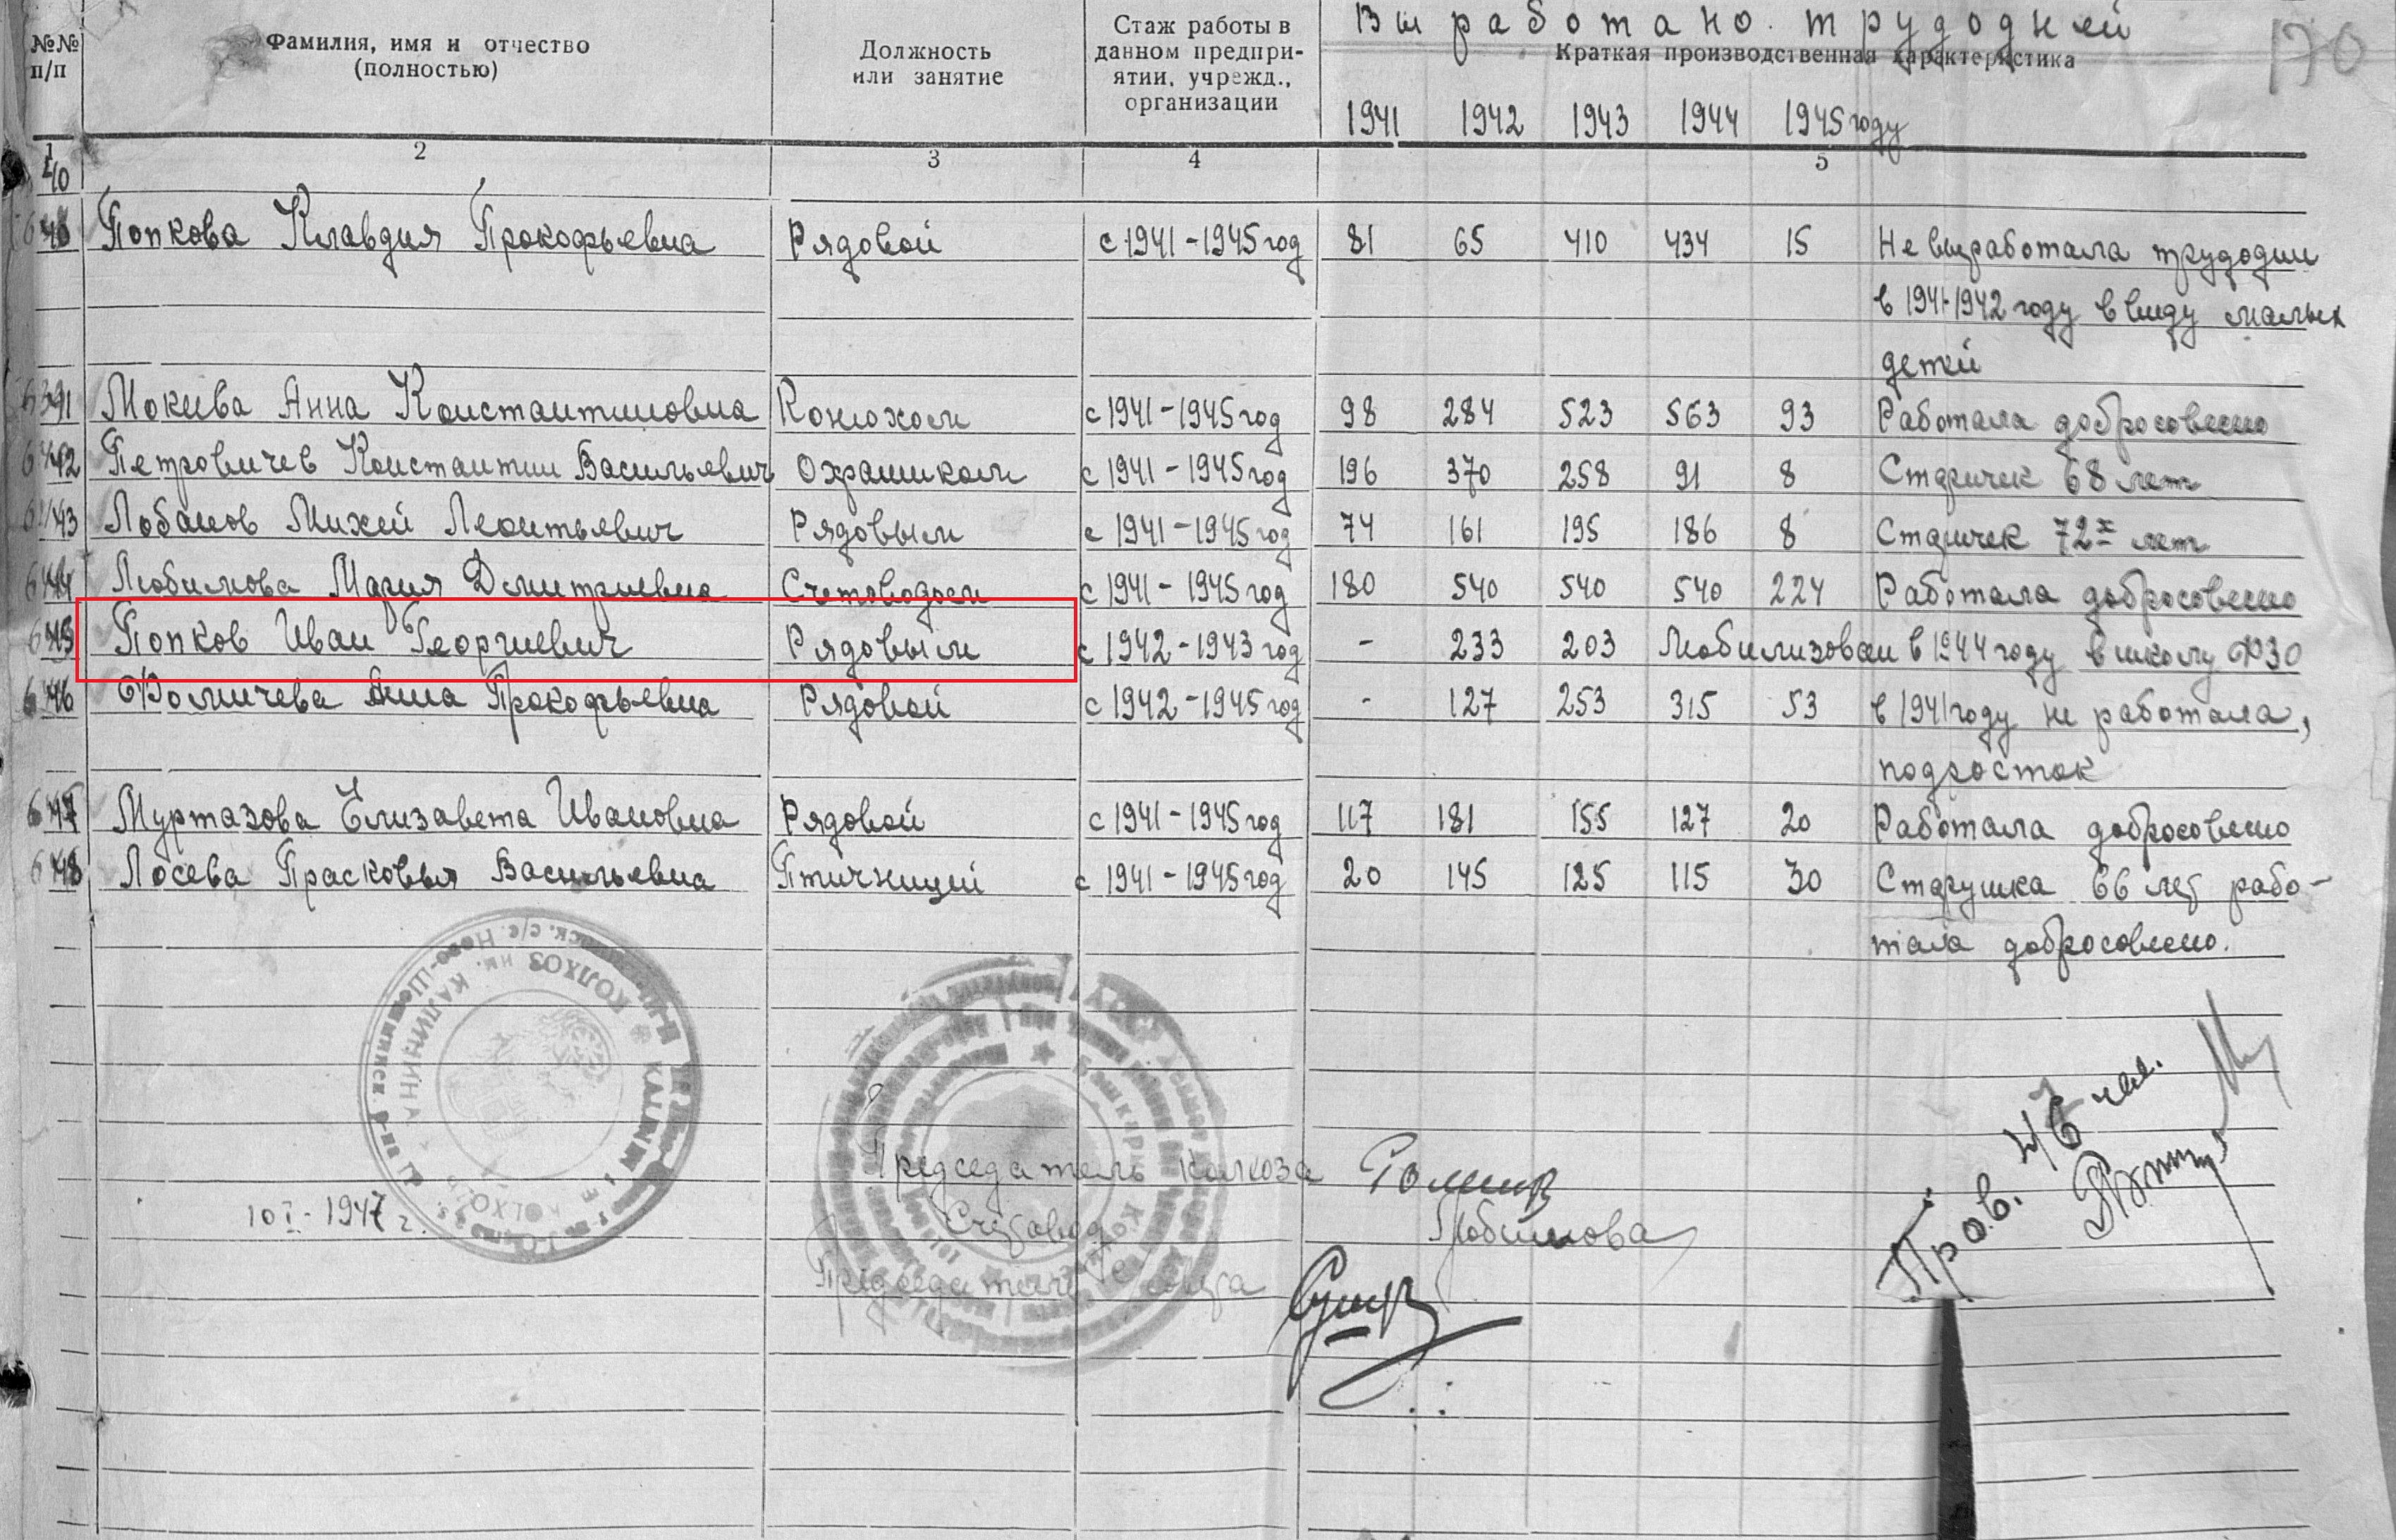 Выработано трудодней
170
№№ п/п
Фамилия, имя и отчество (полностью)
Должность или занятие
Стаж работы в данном предприятии, учрежд., организации
Краткая производственная характеристика
1941 1942 1943 1944 1945 году
1 2 3 4 5
40 Попкова Клавдия Прокофьевна Рядовой с 1941-1945 год 81 65 410 434 15 Не выработала трудодни
в 1941-1942 году ввиду малых
детей
41 Мокеева Анна Константиновна Конюхом с 1941-1945 год 98 284 523 563 93 Работала добросовесно
42 Петровичев Константин Васильевич Охраником с 1941-1945 год 196 370 258 91 8 Старичек 68 лет
43 Лобанов Михей Леонтьевич Рядовым с 1941-1945 год 74 161 195 186 8 Старичек 72х лет
44 Любимова Мария Дмитриевна Счетоводом с 1941-1945 год 180 540 540 540 224 Работала добросовесно
45 Попков Иван Георгиевич Рядовым с 1942-1943 год - 233 203 Мобилизован в 1944 году в школу ФЗО
46 Фомичева Анна Прокофьевна Рядовой с 1942-1945 год - 127 253 315 53 в 1941 году не работала,
подросток
47 Муртазова Елизавета Ивановна Рядовой с 1941-1945 год 117 181 155 127 20 Работала добросовесно
48 Лосева Прасковья Васильевна Птичницей с 1941-1945 год 20 145 125 115 30 Старушка 66 лет рабо-
тала добросовесно.
КОЛХОЗ им. КАЛИНИНА
Председатель колхоза
Счетовод Любимова
Председатель
10 I - 1947 г.
Пров. 46 чел.